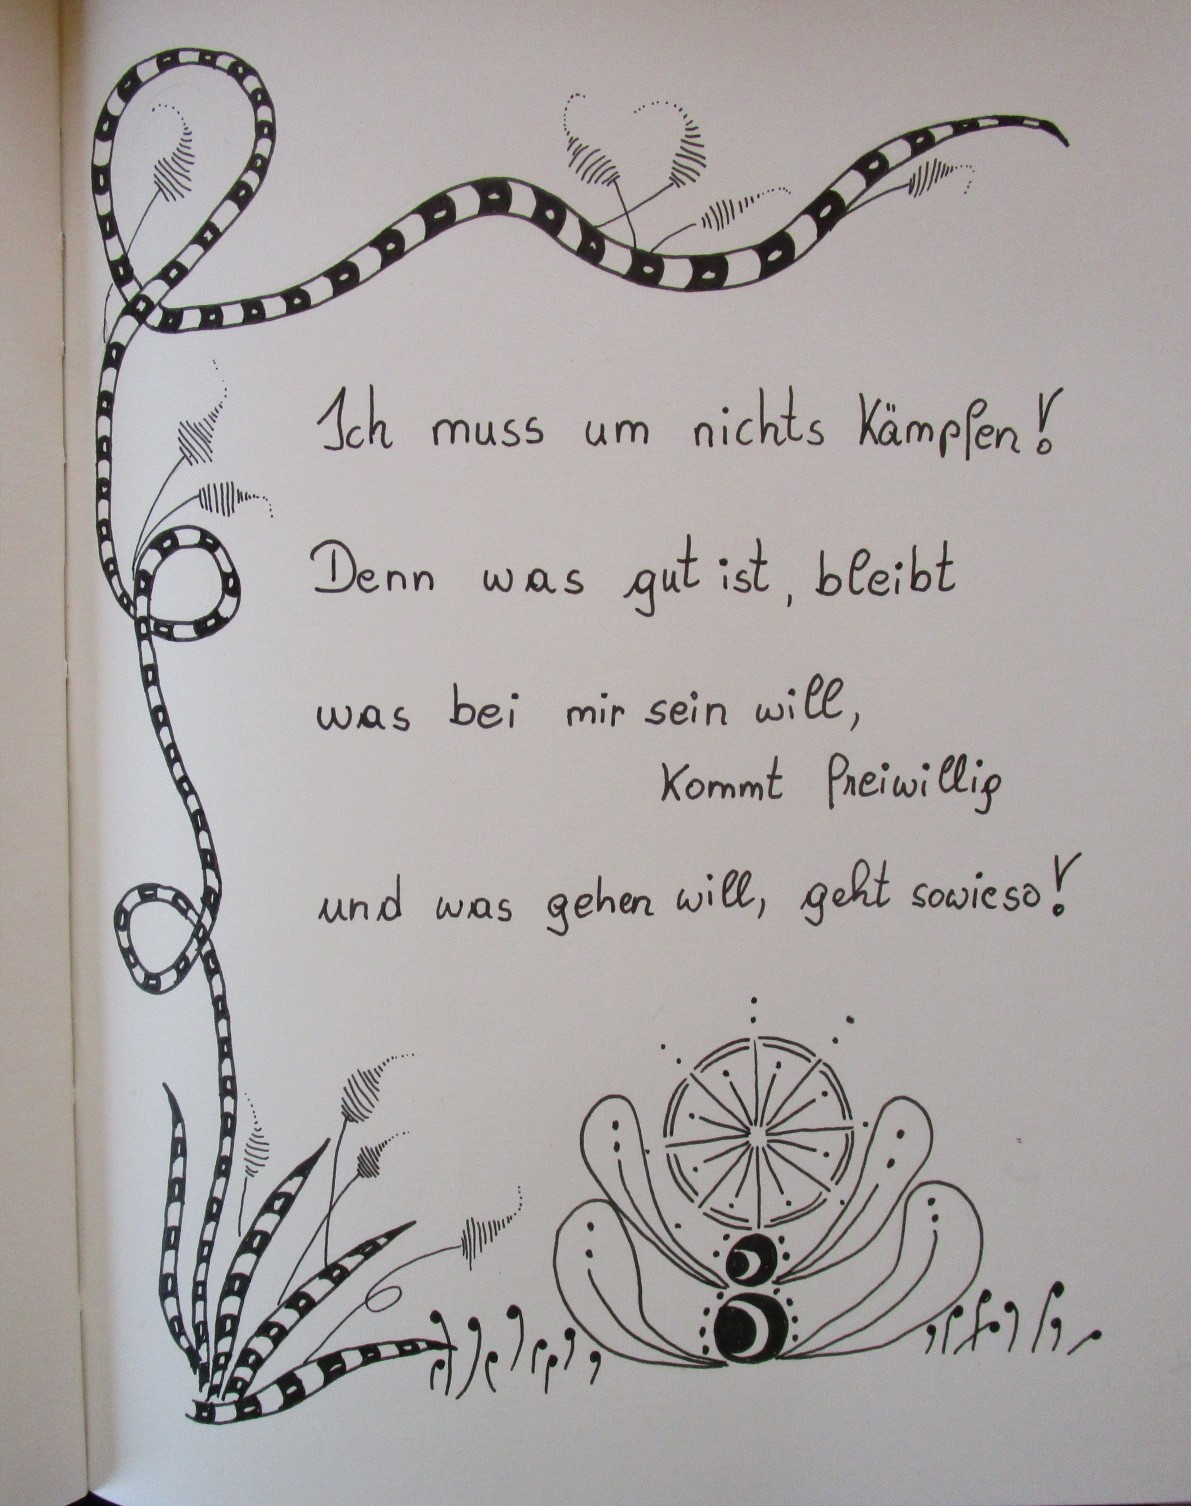 Ich muss um nichts Kämpfen!
Denn was gut ist, bleibt
was bei mir sein will,
Kommt freiwillig
und was gehen will, geht sowieso!